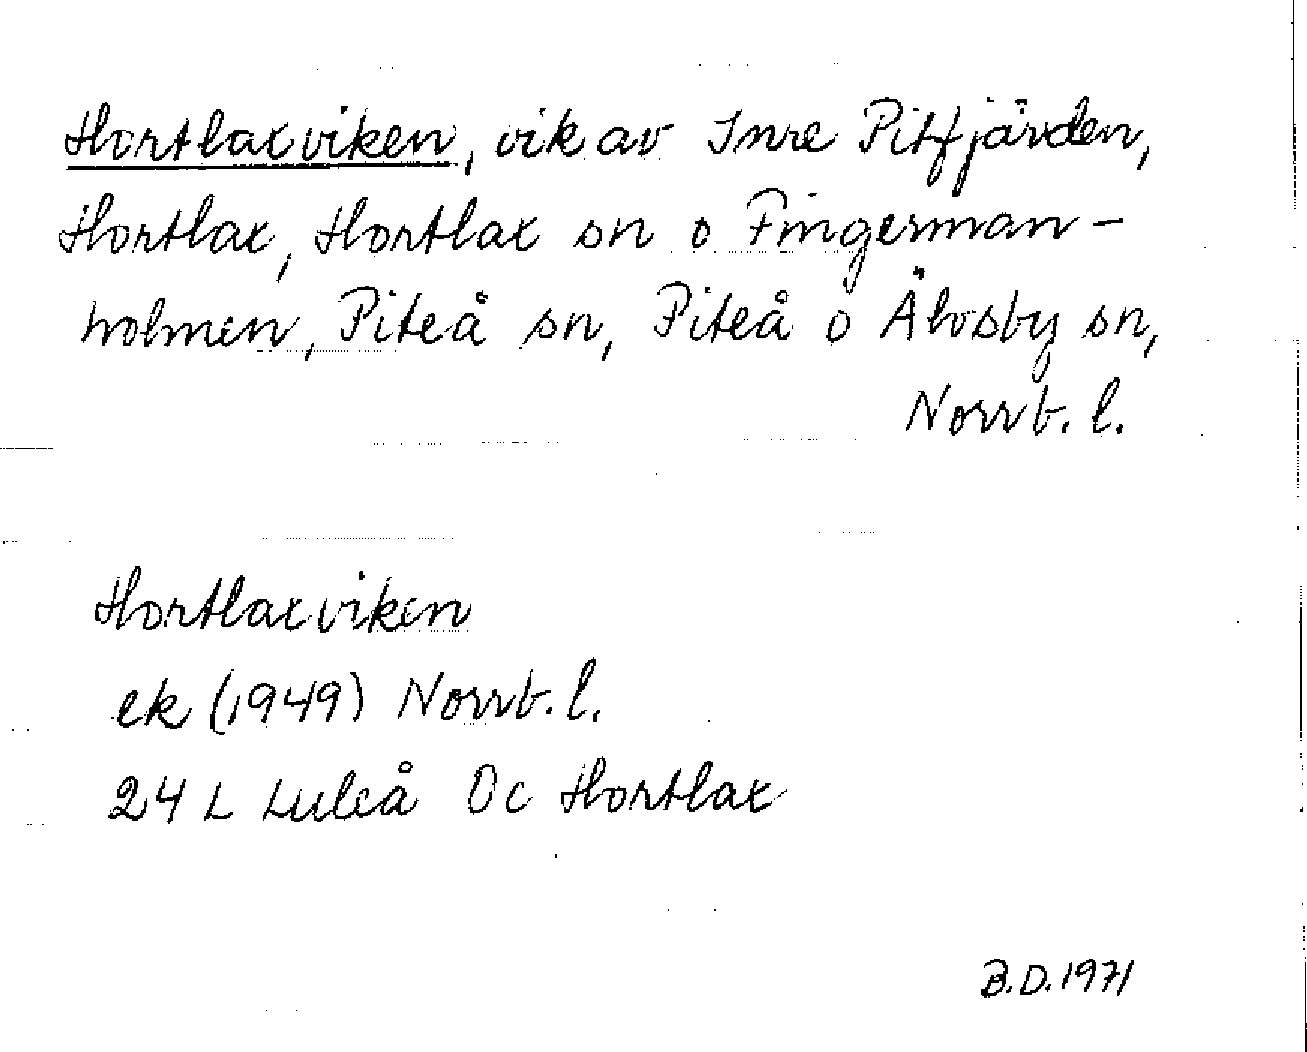 Hortlaxviken, vik av Inre Pitfjärden,
Hortlax, Hortlax sn o Fingerman-
holmen, Piteå sn, Piteå o Älvsby sn,
Norrb. l.
Hortlaxviken
ek (1949) Norrb. l.
24 L Luleå 0c Hortlax
B.D. 1971